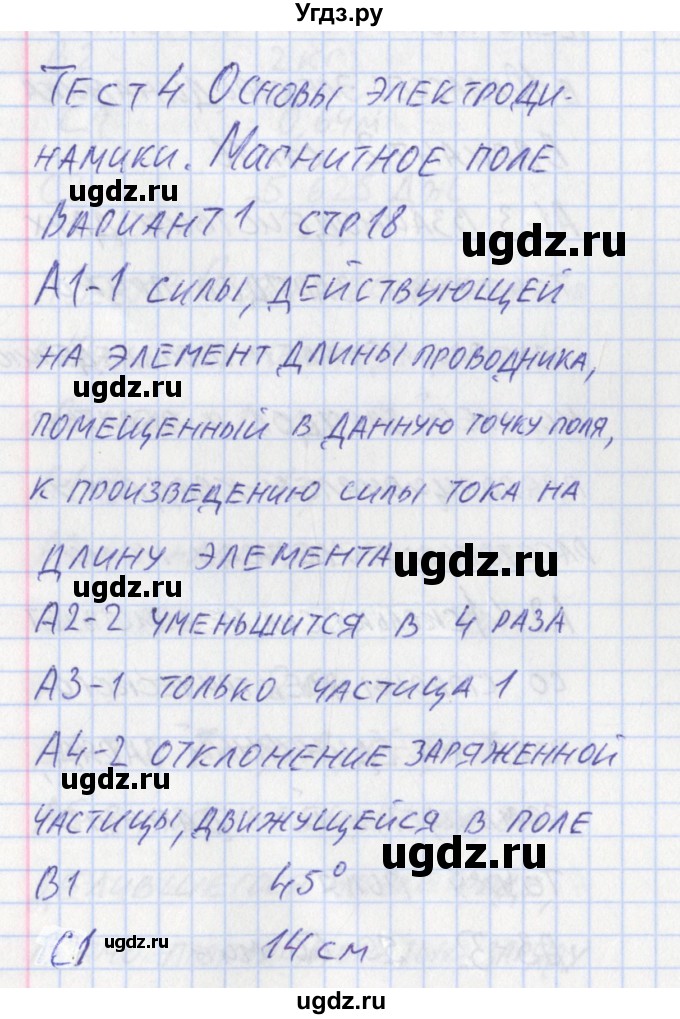 Угдз.ру
Тест 4 Основы электроди-
намики. Магнитное поле
ugdz.ru
Вариант 1 стр 18
ugdz.ru
А1-1 силы, действующей
на элемент длины проводника,
ugdz.ru
помещенный в данную точку поля,
к произведению силы тока на
длину элемента
ugdz.ru
ugdz.ru
А2-2 уменьшится в 4 раза
А3-1 только частица 1
А4-2 отклонение заряженной
ugdz.ru
частицы, движущейся в поле
ugdz.ru
В1 45°
С1 ugdz.ru 14 см
ugdz.ru